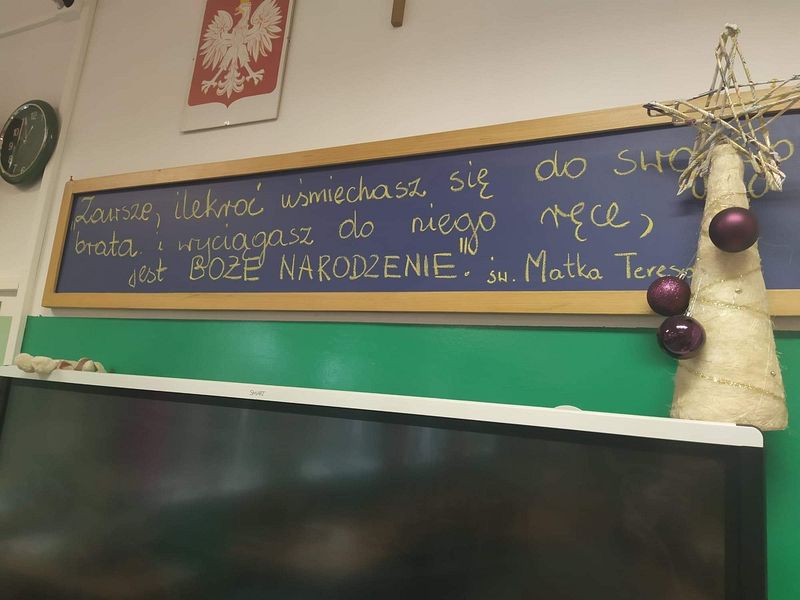 "Zawsze, ilekroć uśmiechasz się do
brata i wyciągasz do niego ręce,
jest BOŻE NARODZENIE". św. Matka Teresa
SMART